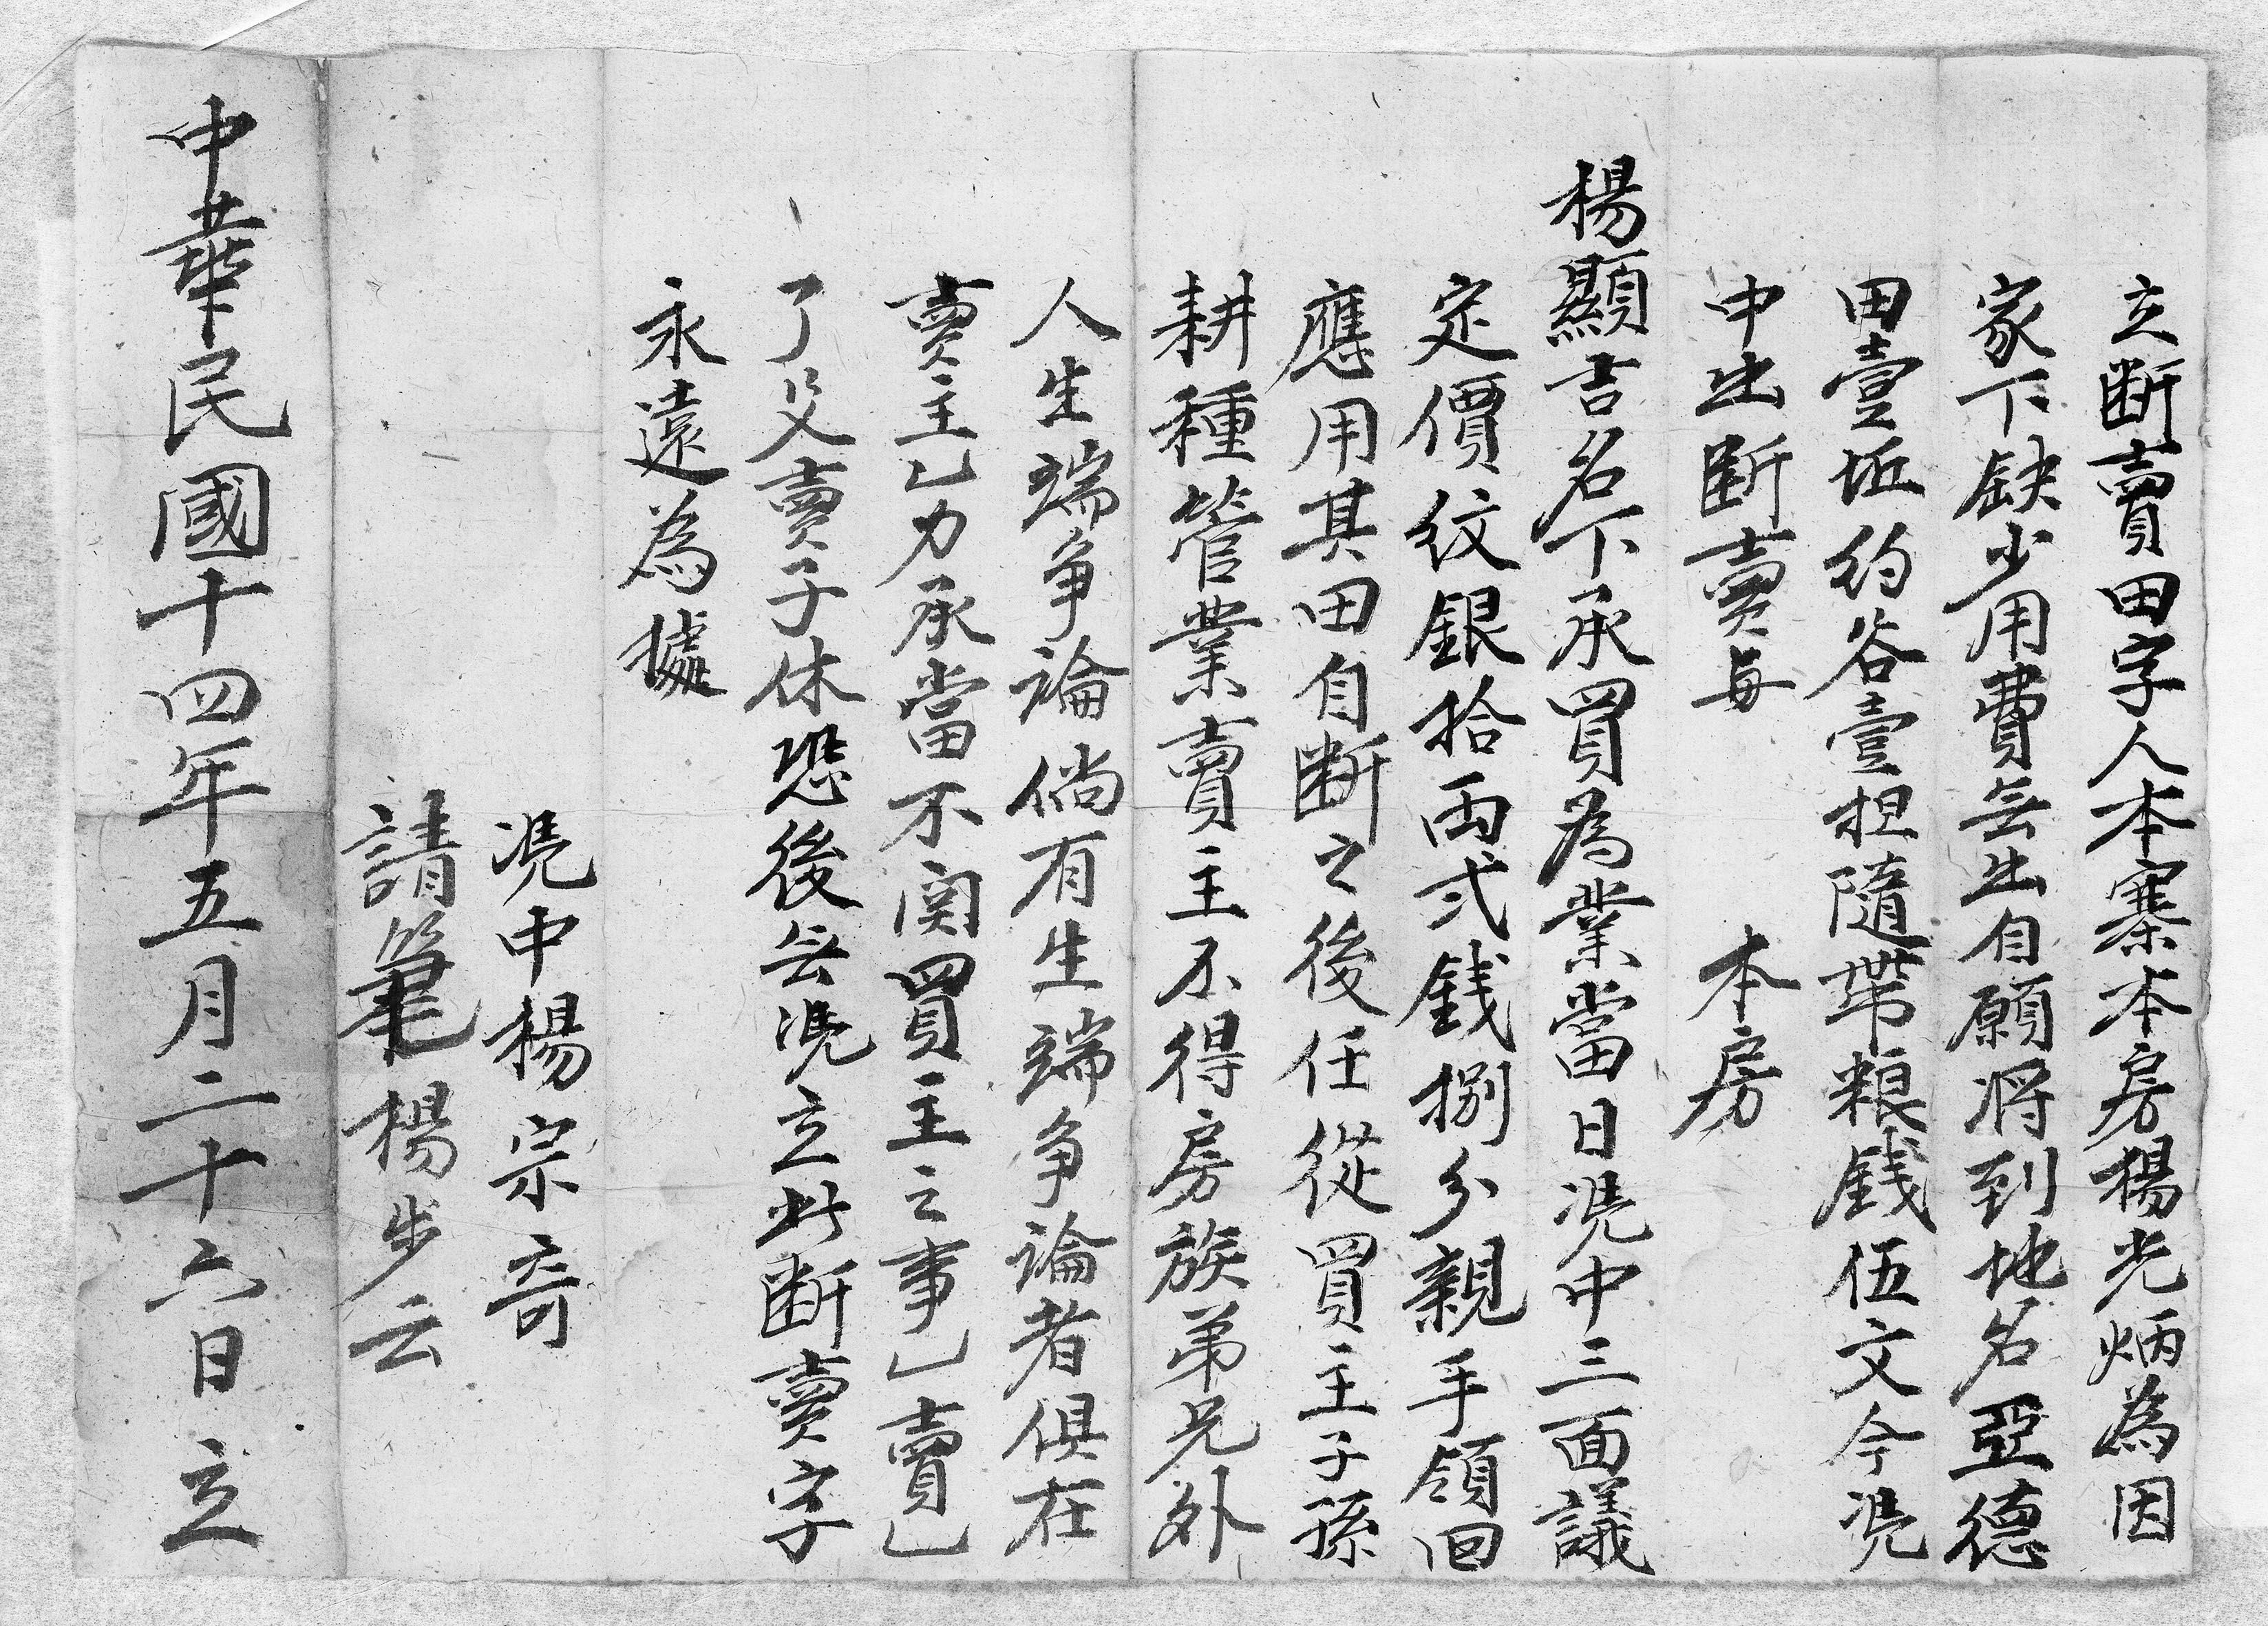 立断賣田字人本寨本房楊光炳為因
家下缺少用費無出自願将到地名亞德
田壹坵約谷壹担隨帶粮錢伍文今凴
中出断賣与　本房
楊顯吉名下承買為業當日凴中三面議
定價紋銀拾両弍錢捌分親手領回
應用其田自断之後任從買主子孫
耕種管業賣主不得房族弟兄外
人生端争論倘有生端争論者俱在
賣主乙力承當不関買主之事乙賣乙
了父賣子休恐後無凴立此断賣字
永遠為據
凴中楊宗奇
請筆楊步云
中華民國十四年五月二十六日立